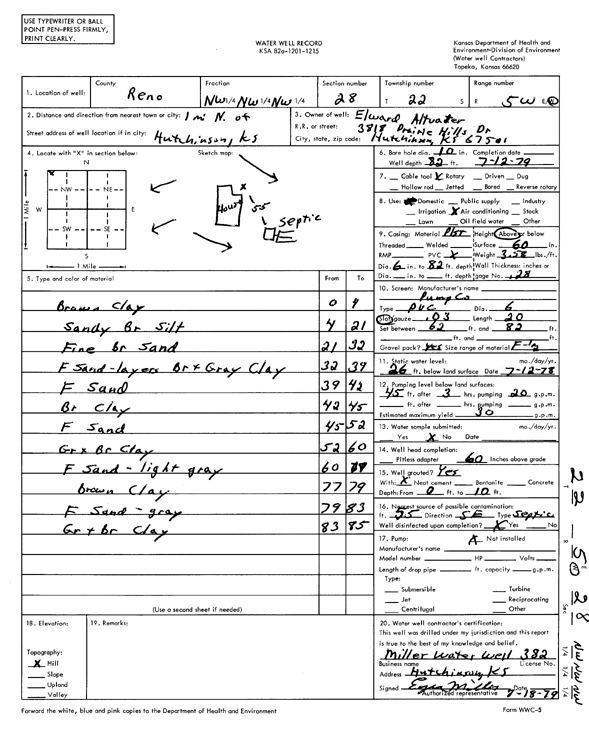 USE TYPEWRITER OR BALL
POINT PEN-PRESS FIRMLY,
PRINT CLEARLY.
WATER WELL RECORD
KSA 82a-1201-1215
Kansas Department of Health and
Environment-Division of Environment
(Water well Contractors)
Topeka, Kansas 66620
1. Location of well: County Reno Fraction NW 1/4 NW 1/4 NW 1/4 Section number 28 Township number T 22 S Range number R 5W E/W
2. Distance and direction from nearest town or city: 1 mi N. of
Street address of well location if in city: Hutchinson, KS
3. Owner of well: Elward Atwater
R.R. or street: 3818 Prairie Hills Dr
City, state, zip code: Hutchinson, KS 67501
4. Locate with "X" in section below:
N
X
NW NE
W E
SW SE
S
1 Mile
1 Mile
Sketch map:
X
House
55
Septic
5. Type and color of material From To
Brown Clay 0 4
Sandy Br Silt 4 21
Fine Br Sand 21 32
F Sand-layers Br + Gray Clay 32 39
F Sand 39 42
Br Clay 42 45
F Sand 45 52
Gr + Br Clay 52 60
F Sand - light gray 60 77
Brown Clay 77 79
F Sand - gray 79 83
Gr + Br Clay 83 85
(Use a second sheet if needed)
6. Bore hole dia. 10 in. Completion date
Well depth 82 ft. 7-12-79
7. Cable tool X Rotary Driven Dug
Hollow rod Jetted Bored Reverse rotary
8. Use: Domestic Public supply Industry
Irrigation X Air conditioning Stock
Lawn Oil field water Other
9. Casing: Material Plst Height: Above or below
Threaded Welded Surface 60 in.
RMP PVC X Weight 3.58 lbs./ft.
Dia. 6 in. to 82 ft. depth Wall Thickness: inches or
Dia. in. to ft. depth gage No. .28
10. Screen: Manufacturer's name
Pump Co
Type PVC Dia. 6
Slot/gauze .03 Length 20
Set between 62 ft. and 82 ft.
ft. and ft.
Gravel pack? Yes Size range of material F-1/2
11. Static water level: mo./day/yr.
26 ft. below land surface Date 7-12-78
12. Pumping level below land surfaces:
45 ft. after 3 hrs. pumping 20 g.p.m.
ft. after hrs. pumping g.p.m.
Estimated maximum yield 30 g.p.m.
13. Water sample submitted: mo./day/yr.
Yes X No Date
14. Well head completion:
Pitless adapter 60 Inches above grade
15. Well grouted? Yes
With: X Neat cement Bentonite Concrete
Depth: From 0 ft. to 10 ft.
16. Nearest source of possible contamination:
ft. 55 Direction SE Type Septic
Well disinfected upon completion? X Yes No
17. Pump: X Not installed
Manufacturer's name
Model number HP Volts
Length of drop pipe ft. capacity g.p.m.
Type:
Submersible Turbine
Jet Reciprocating
Centrifugal Other
18. Elevation:
Topography:
X Hill
Slope
Upland
Valley
19. Remarks:
20. Water well contractor's certification:
This well was drilled under my jurisdiction and this report
is true to the best of my knowledge and belief.
Miller Water Well 382
Business name License No.
Address Hutchinson, KS
Signed Date 7-18-79
Authorized representative
22 - 5W 28 Sec NW 1/4 NW 1/4 NW 1/4
Forward the white, blue and pink copies to the Department of Health and Environment
Form WWC-5